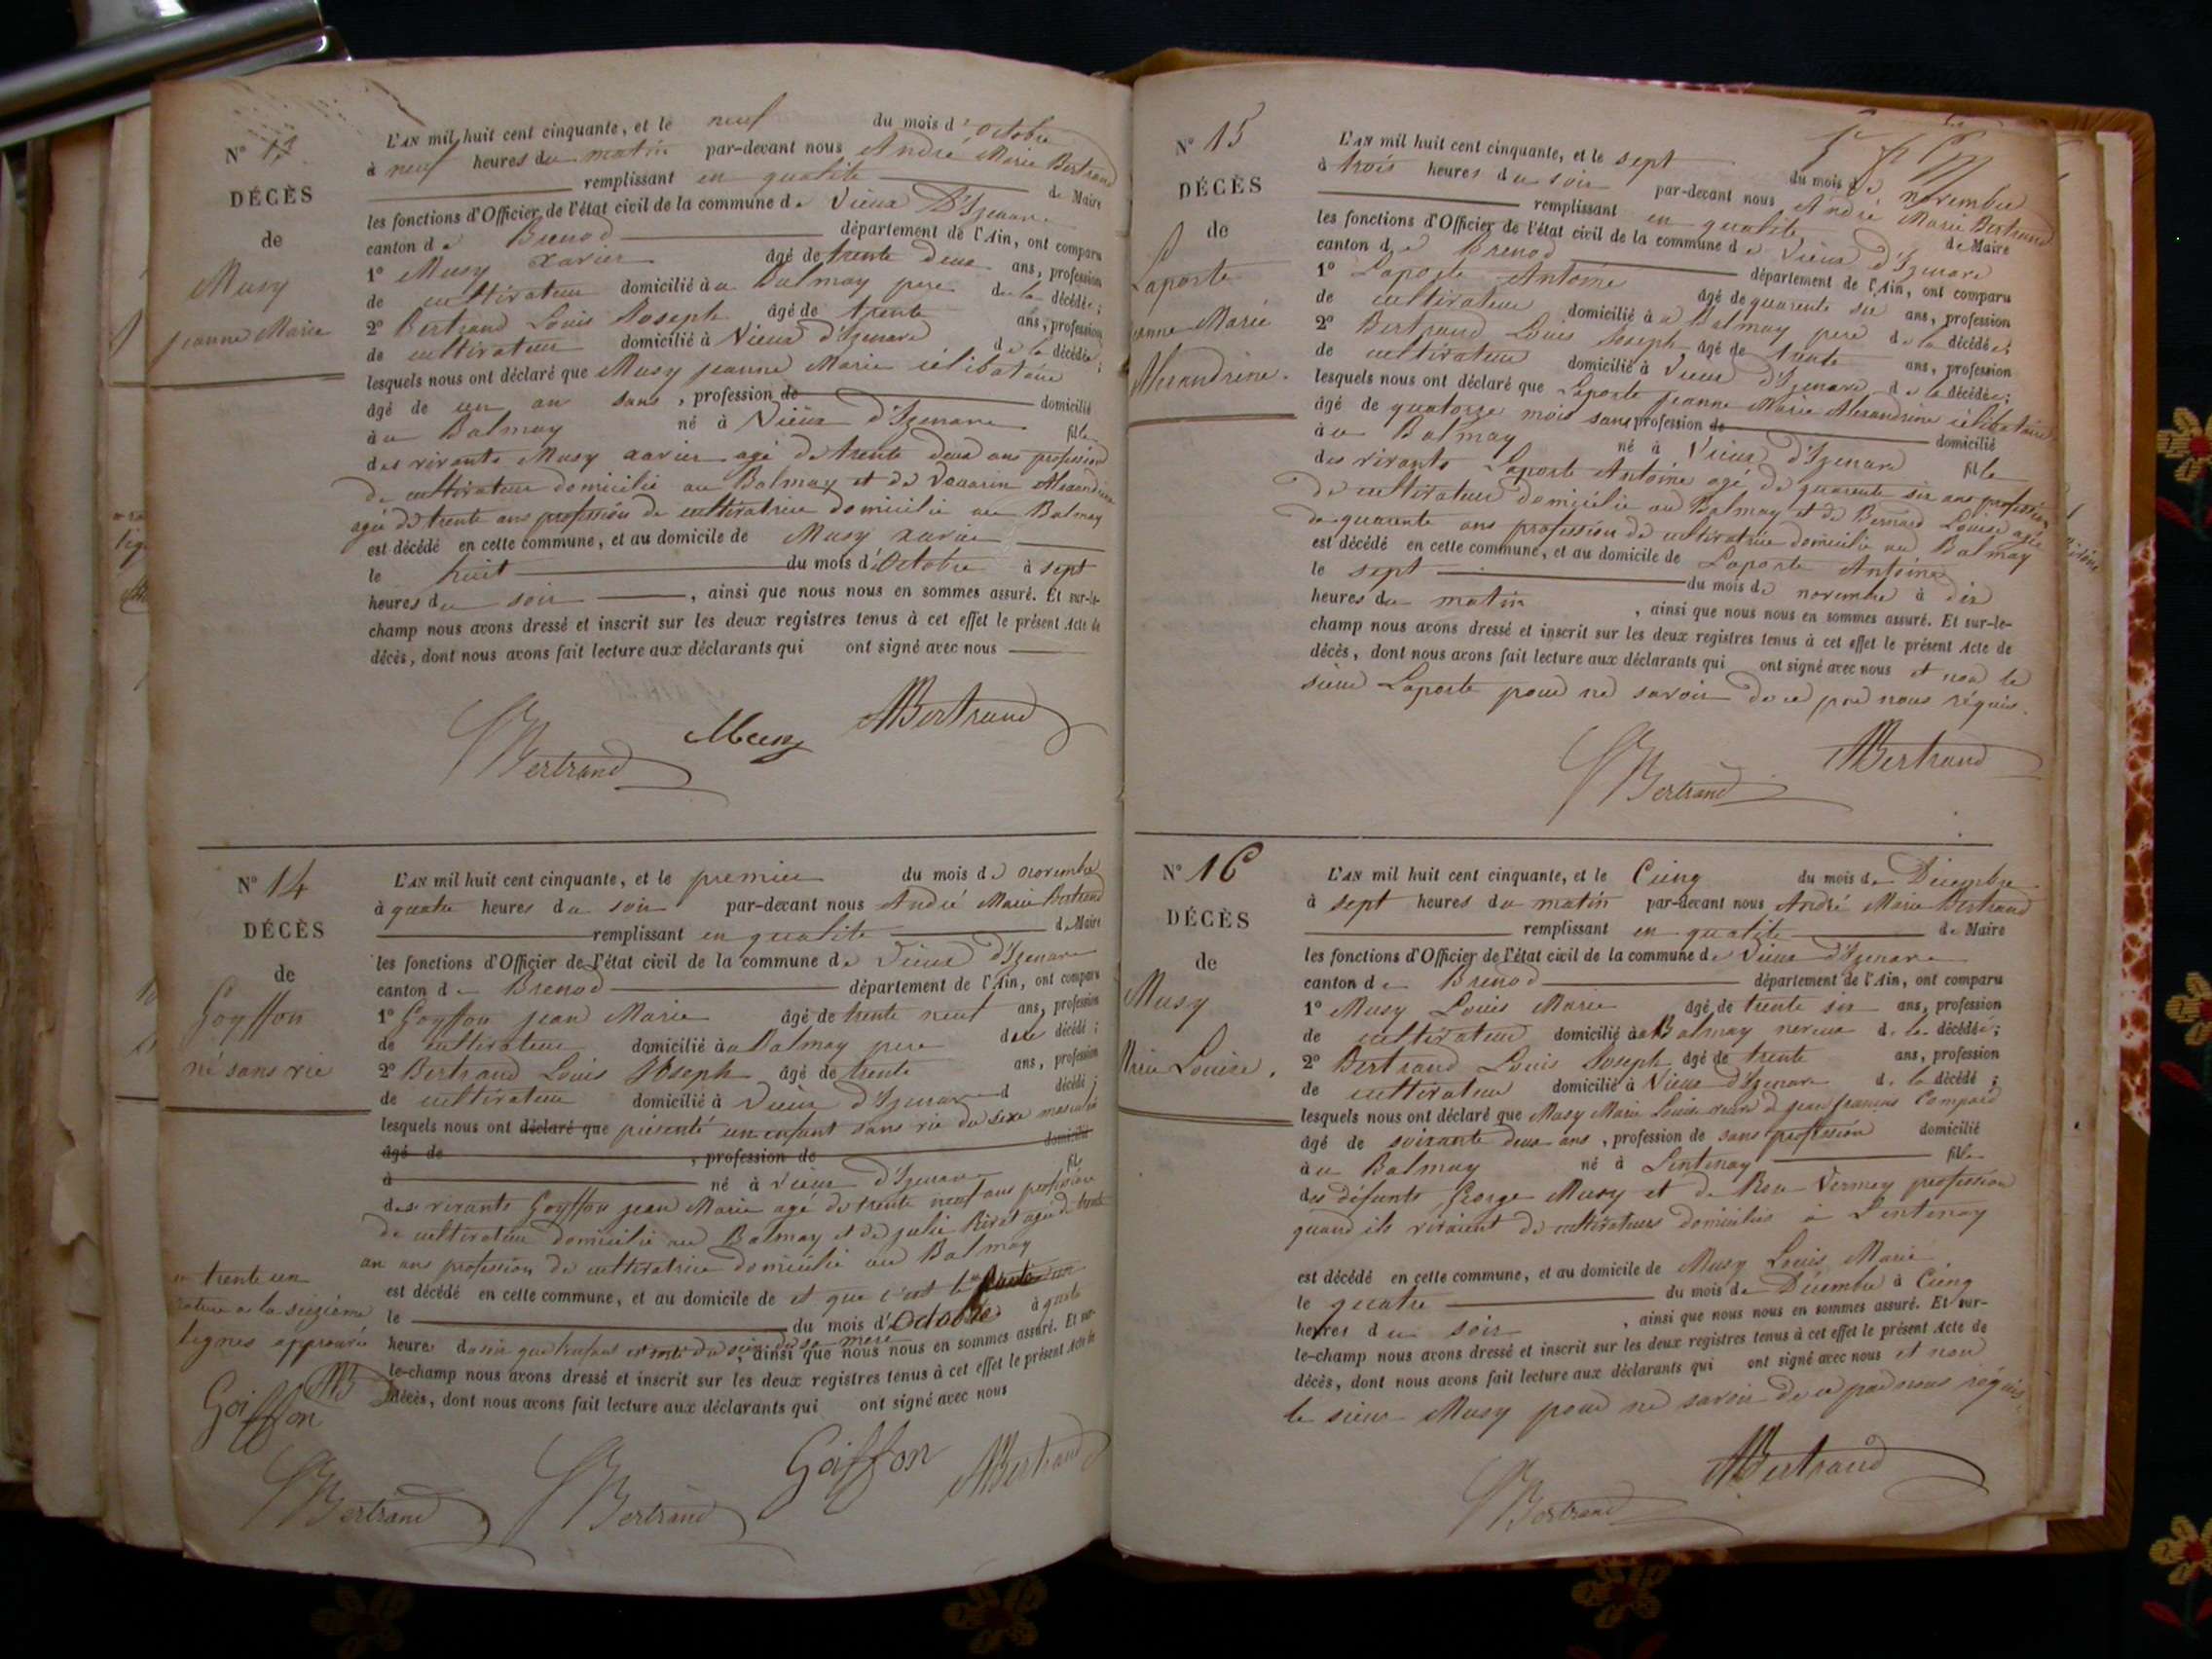 N° 13
DÉCÈS
de
Musy
jeanne Marie
L'AN mil huit cent cinquante, et le neuf du mois d'octobre
à neuf heures du matin par-devant nous André Marie Bertrand
remplissant en qualité de Maire
les fonctions d'Officier de l'état civil de la commune de Vieux D'Izenave
canton de Brenod département de l'Ain, ont comparu
1° Musy xavier âgé de trente deux ans, profession
de cultivateur domicilié à au Balmay pere de la décédée;
2° Bertrand Louis Joseph âgé de trente ans, profession
de cultivateur domicilié à Vieux d'Izenave de la décédée;
lesquels nous ont déclaré que Musy jeanne Marie célibataire
âgé de un an sans, profession de domicilié
à au Balmay né à Vieux d'Izenave fille
des vivants Musy xavier agé de trente deux ans profession
de cultivateur domicilié au Balmay et de Vauarin Alexandrine
agée de trente ans profession de cultivatrice domicilié au Balmay
est décédé en cette commune, et au domicile de Musy xavier
le huit du mois d'Octobre à sept
heures du soir, ainsi que nous nous en sommes assuré. Et sur-le-
champ nous avons dressé et inscrit sur les deux registres tenus à cet effet le présent Acte de
décès, dont nous avons fait lecture aux déclarants qui ont signé avec nous
Bertrand Musy AMBertrand
N° 14
DÉCÈS
de
Goyffon
né sans vie
L'AN mil huit cent cinquante, et le premier du mois de novembre
à quatre heures du soir par-devant nous André Marie Bertrand
remplissant en qualité de Maire
les fonctions d'Officier de l'état civil de la commune de Vieux d'Izenave
canton de Brenod département de l'Ain, ont comparu
1° Goyffon jean Marie âgé de trente neuf ans, profession
de cultivateur domicilié à au Balmay pere du décédé;
2° Bertrand Louis Joseph âgé de trente ans, profession
de cultivateur domicilié à Vieux d'Izenave d décédé;
lesquels nous ont déclaré que présenté un enfant sans vie du sexe masculin
âgé de, profession de domicilié
à né à Vieux d'Izenave fils
des vivants Goyffon jean Marie agé de trente neuf ans profession
de cultivateur domicilié au Balmay et de julie Rivat agée de trente
an ans profession de cultivatrice domicilié au Balmay
est décédé en cette commune, et au domicile de et que c'est le trente un
le du mois d'Octobre à quatre
heures du soir que l'enfant est sorti du sein de sa mere, ainsi que nous nous en sommes assuré. Et sur-
le-champ nous avons dressé et inscrit sur les deux registres tenus à cet effet le présent Acte de
décès, dont nous avons fait lecture aux déclarants qui ont signé avec nous
trente un
rature a la seizième
lignes approuvé
Goiffon AMB
Bertrand Bertrand Goiffon AMBertrand
N° 15
DÉCÈS
de
Laporte
jeanne Marie
Alexandrine.
L'AN mil huit cent cinquante, et le sept du mois de novembre
à trois heures du soir par-devant nous André Marie Bertrand
remplissant en qualité de Maire
les fonctions d'Officier de l'état civil de la commune de Vieux d'Izenave
canton de Brenod département de l'Ain, ont comparu
1° Laporte Antoine âgé de quarente six ans, profession
de cultivateur domicilié à au Balmay pere de la décédée;
2° Bertrand Louis Joseph, âgé de trente ans, profession
de cultivateur domicilié à Vieux d'Izenave de la décédée;
lesquels nous ont déclaré que Laporte jeanne Marie Alexandrine célibataire
âgé de quatorze mois sans profession de domicilié
à au Balmay né à Vieux d'Izenave fille
des vivants Laporte Antoine agé de quarente six ans profession
de cultivateur domicilié au Balmay et de Bernard Louise agée
de quarente ans profession de cultivatrice domicilié au Balmay
est décédé en cette commune, et au domicile de Laporte Antoine
le sept du mois de novembre à dix
heures du matin, ainsi que nous nous en sommes assuré. Et sur-le-
champ nous avons dressé et inscrit sur les deux registres tenus à cet effet le présent Acte de
décès, dont nous avons fait lecture aux déclarants qui ont signé avec nous et non le
sieur Laporte pour ne savoir de ce par nous réquis.
Bertrand AMBertrand
N° 16
DÉCÈS
de
Musy
Marie Louise.
L'AN mil huit cent cinquante, et le Cinq du mois de Décembre
à sept heures du matin par-devant nous André Marie Bertrand
remplissant en qualité de Maire
les fonctions d'Officier de l'état civil de la commune de Vieux d'Izenave
canton de Brenod département de l'Ain, ont comparu
1° Musy Louis Marie âgé de trente six ans, profession
de cultivateur domicilié à au Balmay neveux de la décédée;
2° Bertrand Louis Joseph âgé de trente ans, profession
de cultivateur domicilié à Vieux d'Izenave de la décédé;
lesquels nous ont déclaré que Musy Marie Louise veuve d jean françois Compard
âgé de soixante deux ans, profession de sans profession domicilié
à au Balmay né à Lentenay fille
des défunts George Musy et de Rose Vermey profession
quand ils vivaient de cultivateurs domiciliés à Lentenay
est décédé en cette commune, et au domicile de Musy Louis Marie
le quatre du mois de Décembre à Cinq
heures du soir, ainsi que nous nous en sommes assuré. Et sur-
le-champ nous avons dressé et inscrit sur les deux registres tenus à cet effet le présent Acte de
décès, dont nous avons fait lecture aux déclarants qui ont signé avec nous et non
le sieur Musy pour ne savoir de ce par nous réquis.
Bertrand AMBertrand